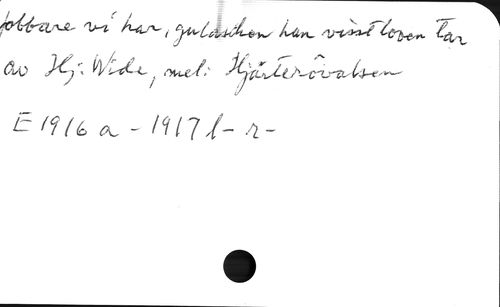 Jobbare vi har, gulaschen han visst loven tar
av Hj: Wide, mel: Hjärterövalsen
E 1916 a - 1917 l - r -